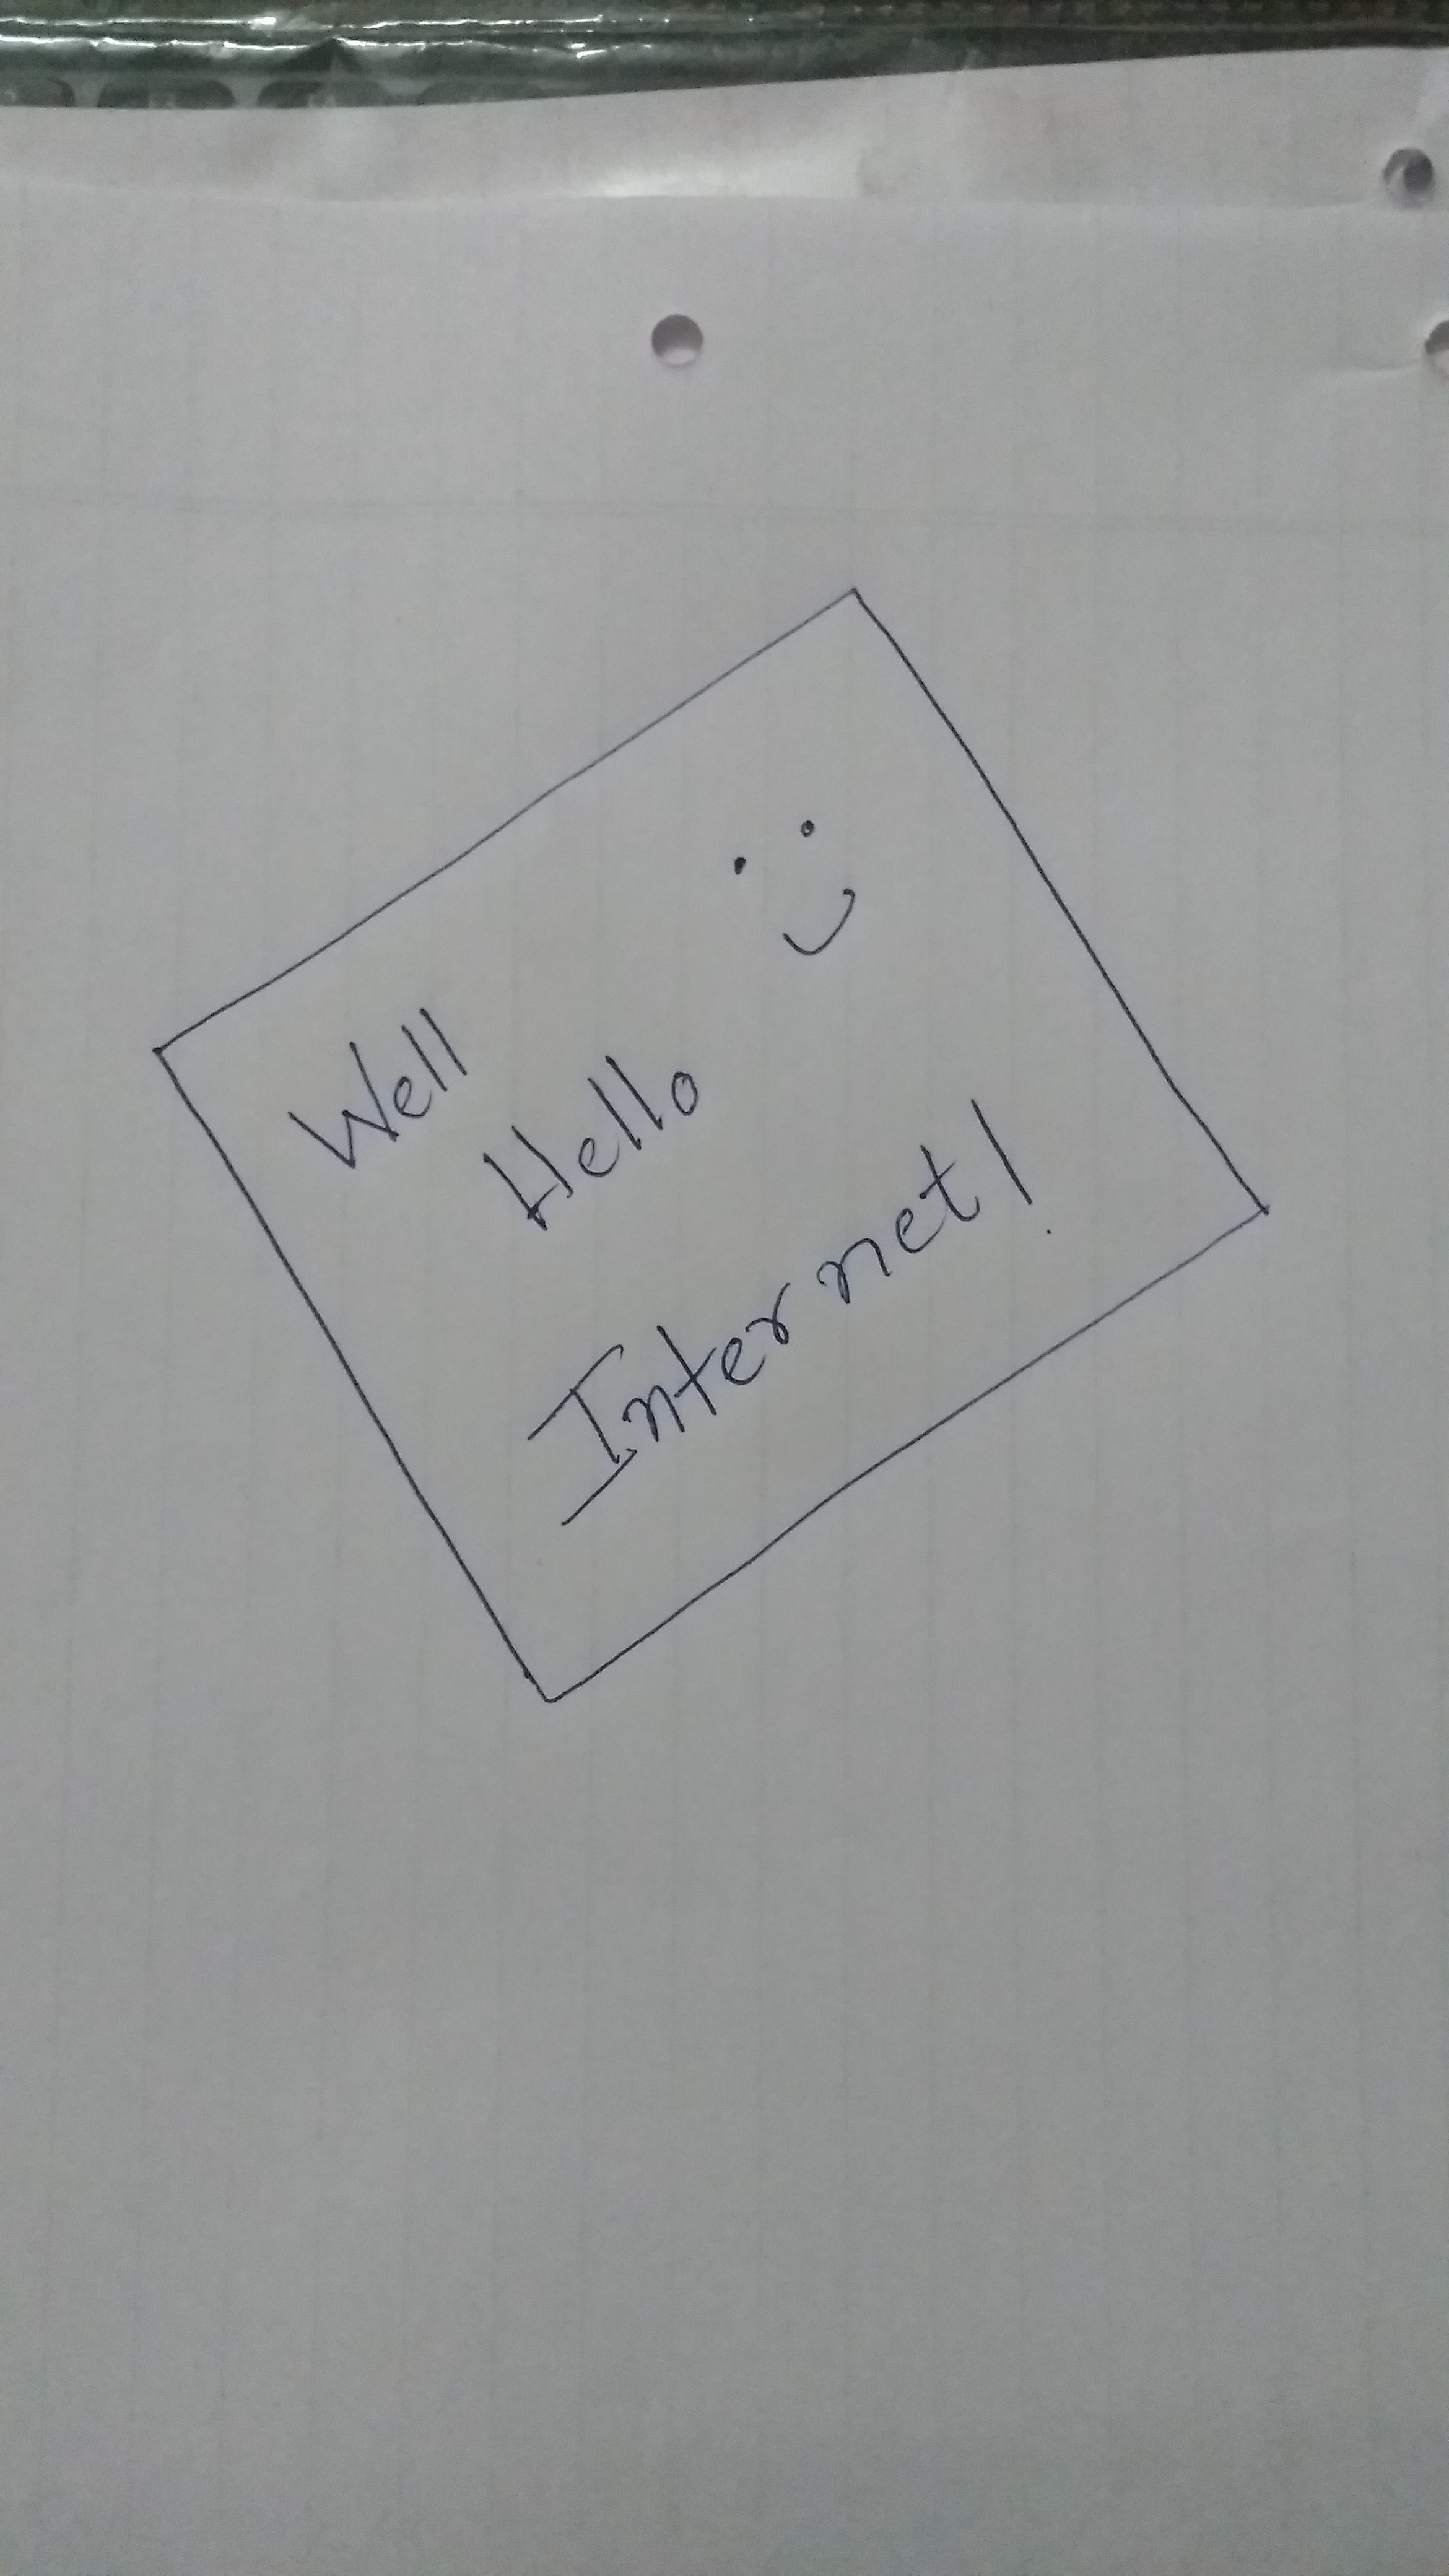 Well
Hello :)
Internet!